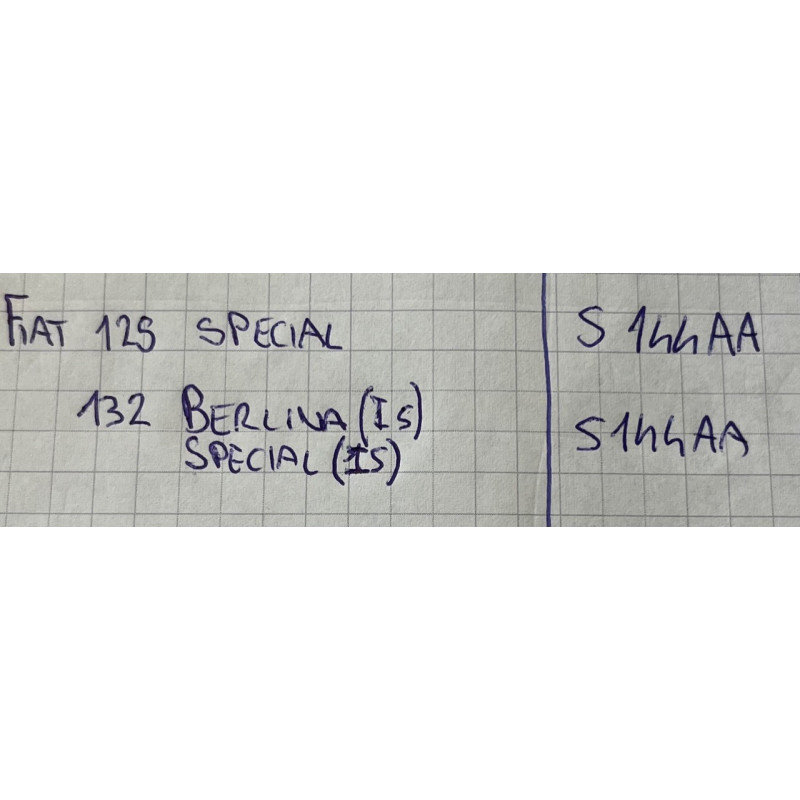 FIAT 125 SPECIAL S 144AA
132 BERLINA (IS) S144AA
SPECIAL (IS)